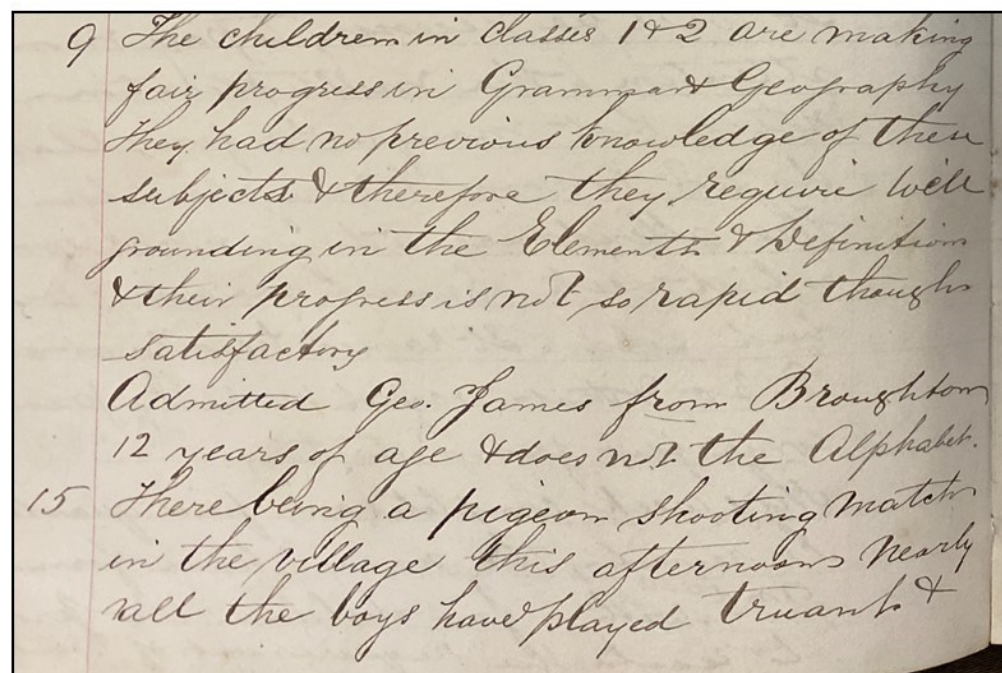 9 The children in classes 1 & 2 are making
fair progress in Grammar & Geography
They had no previous knowledge of these
subjects & therefore they require well
grounding in the Elements & Definitions
& their progress is not so rapid though
satisfactory
Admitted Geo. James from Broughton
12 years of age & does not the Alphabet.
15 There being a pigeon shooting match
in the village this afternoon nearly
all the boys have played truant &